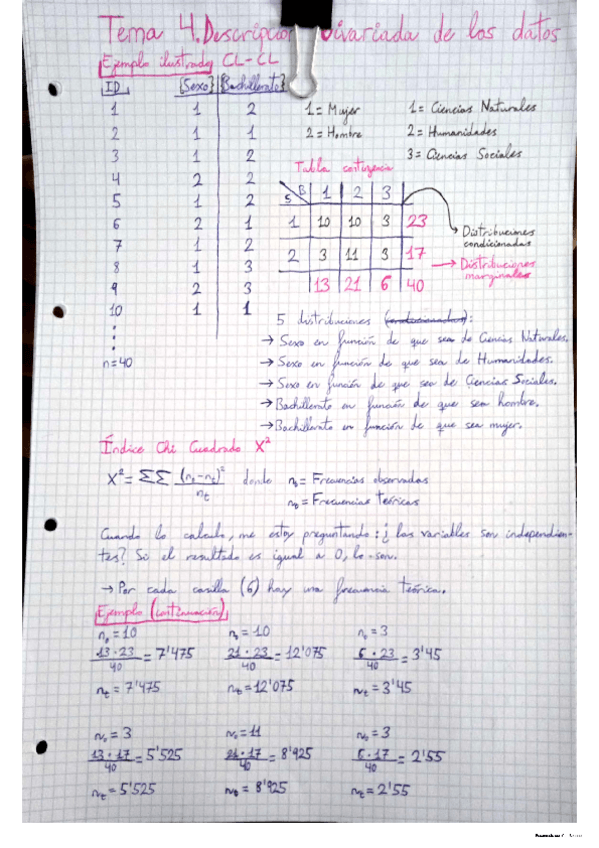 Tema 4. Descripción bivariada de los datos
Ejemplo ilustrado CL-CL
ID {Sexo} {Bachillerato}
1 1 2 1= Mujer 1= Ciencias Naturales
2 1 1 2= Hombre 2= Humanidades
3 1 2 3= Ciencias Sociales
4 2 2 Tabla contigencia
5 1 2 S B 1 2 3
6 2 1 1 10 10 3 23 → Distribuciones condicionadas
7 1 2
8 1 3 2 3 11 3 17 → Distribuciones marginales
9 2 3 13 21 6 40
10 1 1
5 distribuciones (condicionadas):
→ Sexo en función de que sea de Ciencias Naturales.
n=40 → Sexo en función de que sea de Humanidades.
→ Sexo en función de que sea de Ciencias Sociales.
→ Bachillerato en función de que sea hombre.
→ Bachillerato en función de que sea mujer.
Índice Chi Cuadrado X²
X² = ΣΣ (n₀-nₜ)² / nₜ donde n₀ = Frecuencias observadas
n₀ = Frecuencias teóricas
Cuando lo calculo, me estoy preguntando: ¿las variables son independien-
tes? Si el resultado es igual a 0, lo son.
→ Por cada casilla (6) hay una frecuencia teórica.
Ejemplo (continuación)
n₀ = 10 n₀ = 10 n₀ = 3
13 · 23 / 40 = 7'475 21 · 23 / 40 = 12'075 6 · 23 / 40 = 3'45
nₜ = 7'475 nₜ = 12'075 nₜ = 3'45
n₀ = 3 n₀ = 11 n₀ = 3
13 · 17 / 40 = 5'525 21 · 17 / 40 = 8'925 6 · 17 / 40 = 2'55
nₜ = 5'525 n₀ = 8'925 nₜ = 2'55